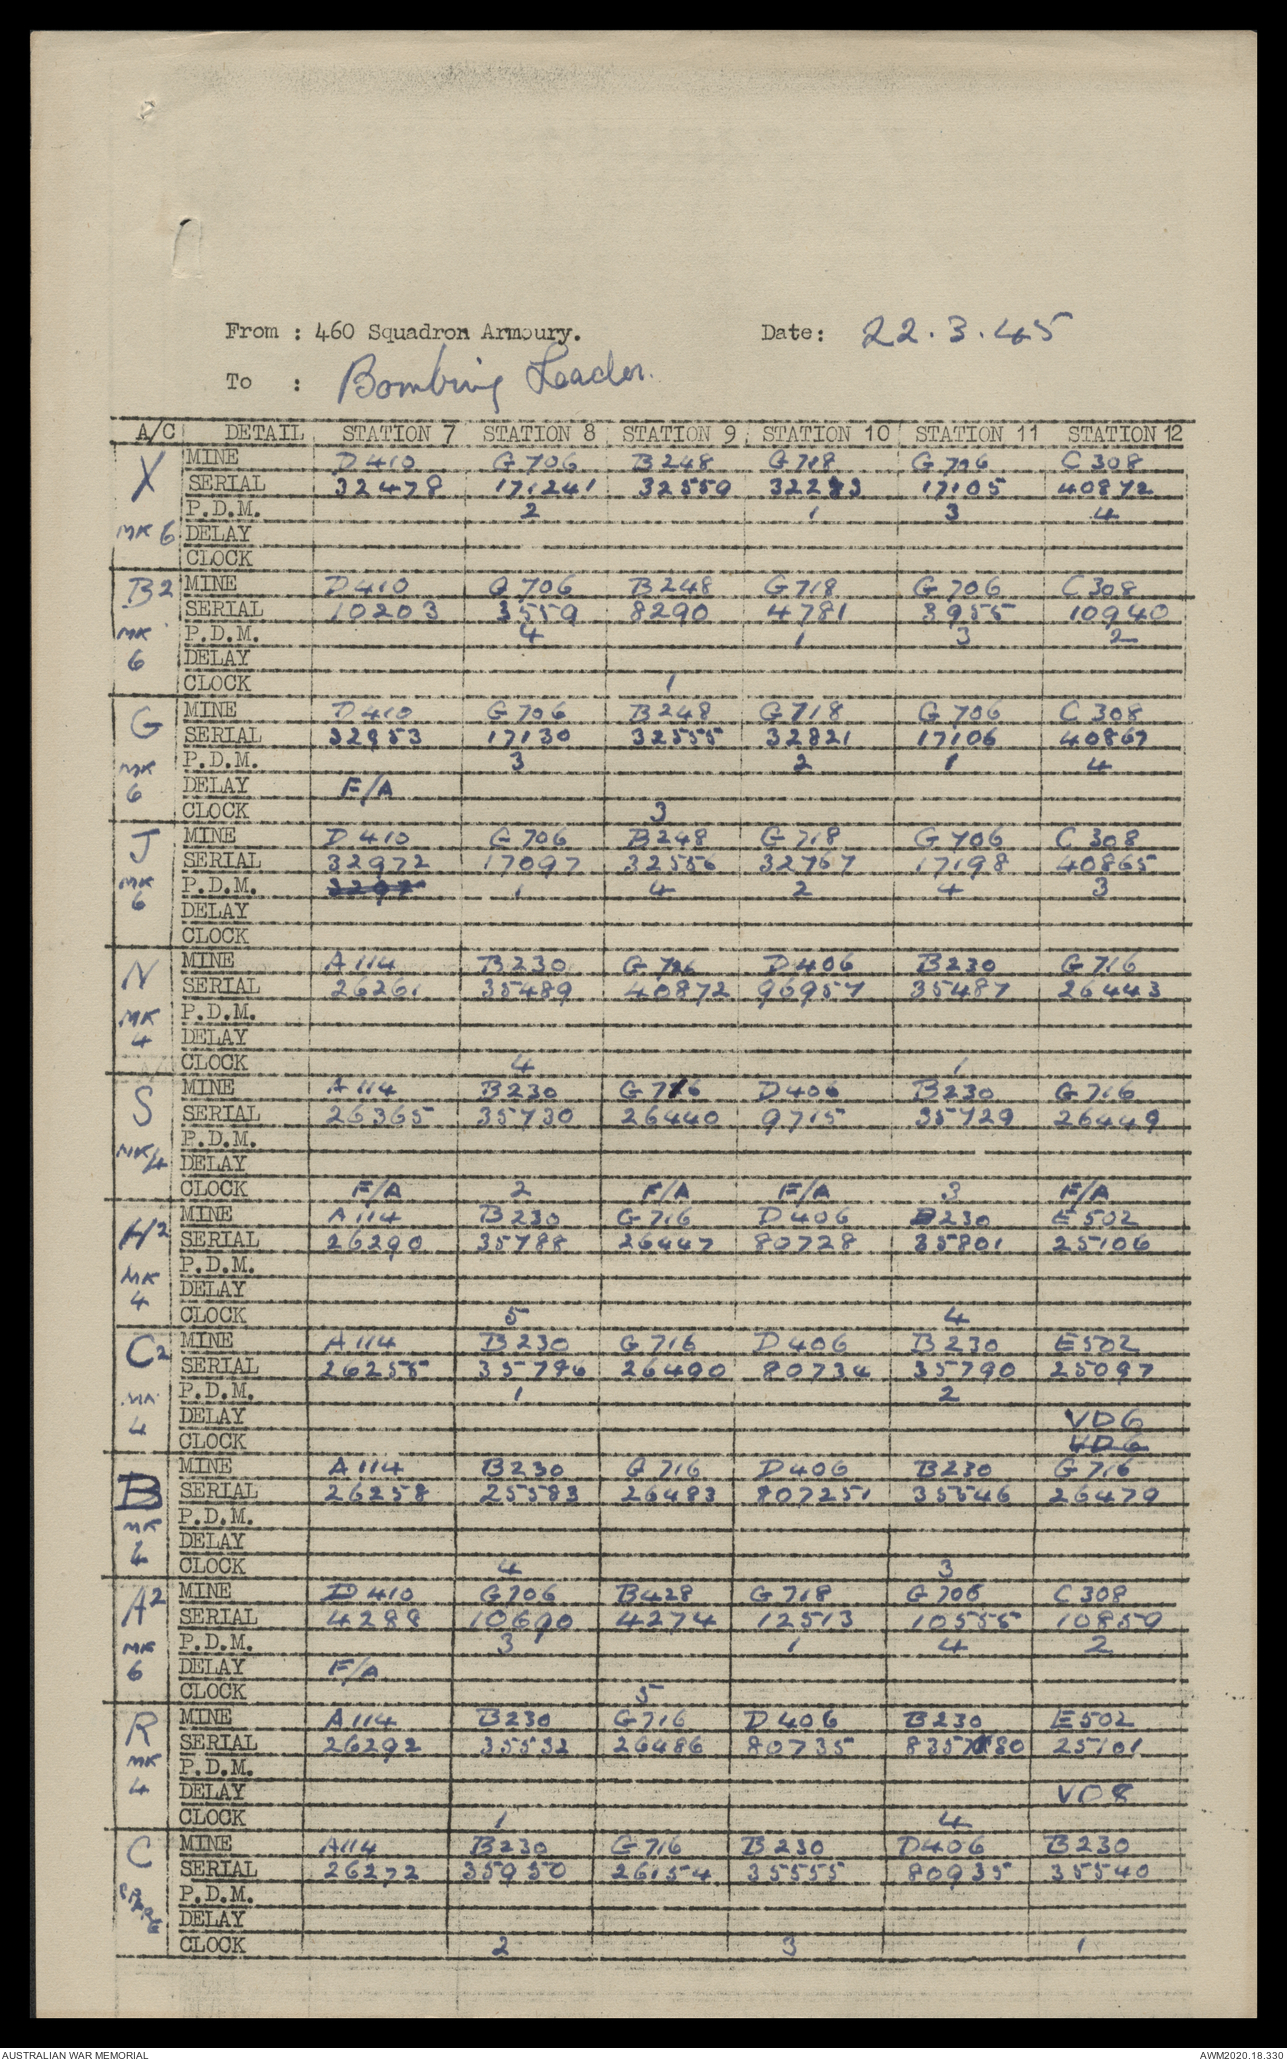 From : 460 Squadron Armoury. Date: 22.3.45
To : Bombing Leader.
A/C DETAIL STATION 7 STATION 8 STATION 9 STATION 10 STATION 11 STATION 12
X MINE D410 G706 B248 G718 G706 C308
SERIAL 32478 171241 32559 32283 17105 40872
P.D.M. 2 1 3 4
MK 6 DELAY
CLOCK
B2 MINE D410 G706 B248 G718 G706 C308
SERIAL 10203 3559 8290 4781 3955 10940
MK P.D.M. 4 1 3 2
6 DELAY
CLOCK 1
G MINE D410 G706 B248 G718 G706 C308
SERIAL 32953 17130 32555 32821 17106 40867
MK P.D.M. 3 2 1 4
6 DELAY F/A
CLOCK 3
J MINE D410 G706 B248 G718 G706 C308
SERIAL 32972 17097 32556 32767 17198 40865
MK 6 P.D.M. 3297 1 4 2 4 3
DELAY
CLOCK
N MINE A114 B230 G716 D406 B230 G716
SERIAL 26261 35489 40872 96957 35487 26443
MK P.D.M.
4 DELAY
CLOCK 4 1
S MINE A114 B230 G716 D406 B230 G716
SERIAL 26365 35730 26440 9715 35729 26449
P.D.M.
MK 4 DELAY
CLOCK F/A 2 F/A F/A 3 F/A
H2 MINE A114 B230 G716 D406 B230 E502
SERIAL 26290 35788 26447 80728 35801 25106
P.D.M.
MK 4 DELAY
CLOCK 5 4
C2 MINE A114 B230 G716 D406 B230 E502
SERIAL 26255 35796 26490 80734 35790 25097
MK P.D.M. 1 2
4 DELAY VD6
CLOCK VD6
B MINE A114 B230 G716 D406 B230 G716
SERIAL 26258 25583 26483 807251 35546 26479
P.D.M.
MK DELAY
CLOCK 4 3
A2 MINE D410 G706 B428 G718 G706 C308
SERIAL 4288 10690 4274 12513 10555 10859
MK P.D.M. 3 1 4 2
6 DELAY F/A
CLOCK 5
R MINE A114 B230 G716 D406 B230 E502
SERIAL 26292 35532 26486 80735 25101
MK P.D.M.
4 DELAY VD8
CLOCK 1 4
C MINE A114 B230 G716 B230 D406 B230
SERIAL 26272 35950 26154 35555 80935 35540
SPARE P.D.M.
DELAY
CLOCK 2 3 1
AUSTRALIAN WAR MEMORIAL AWM2020.18.330